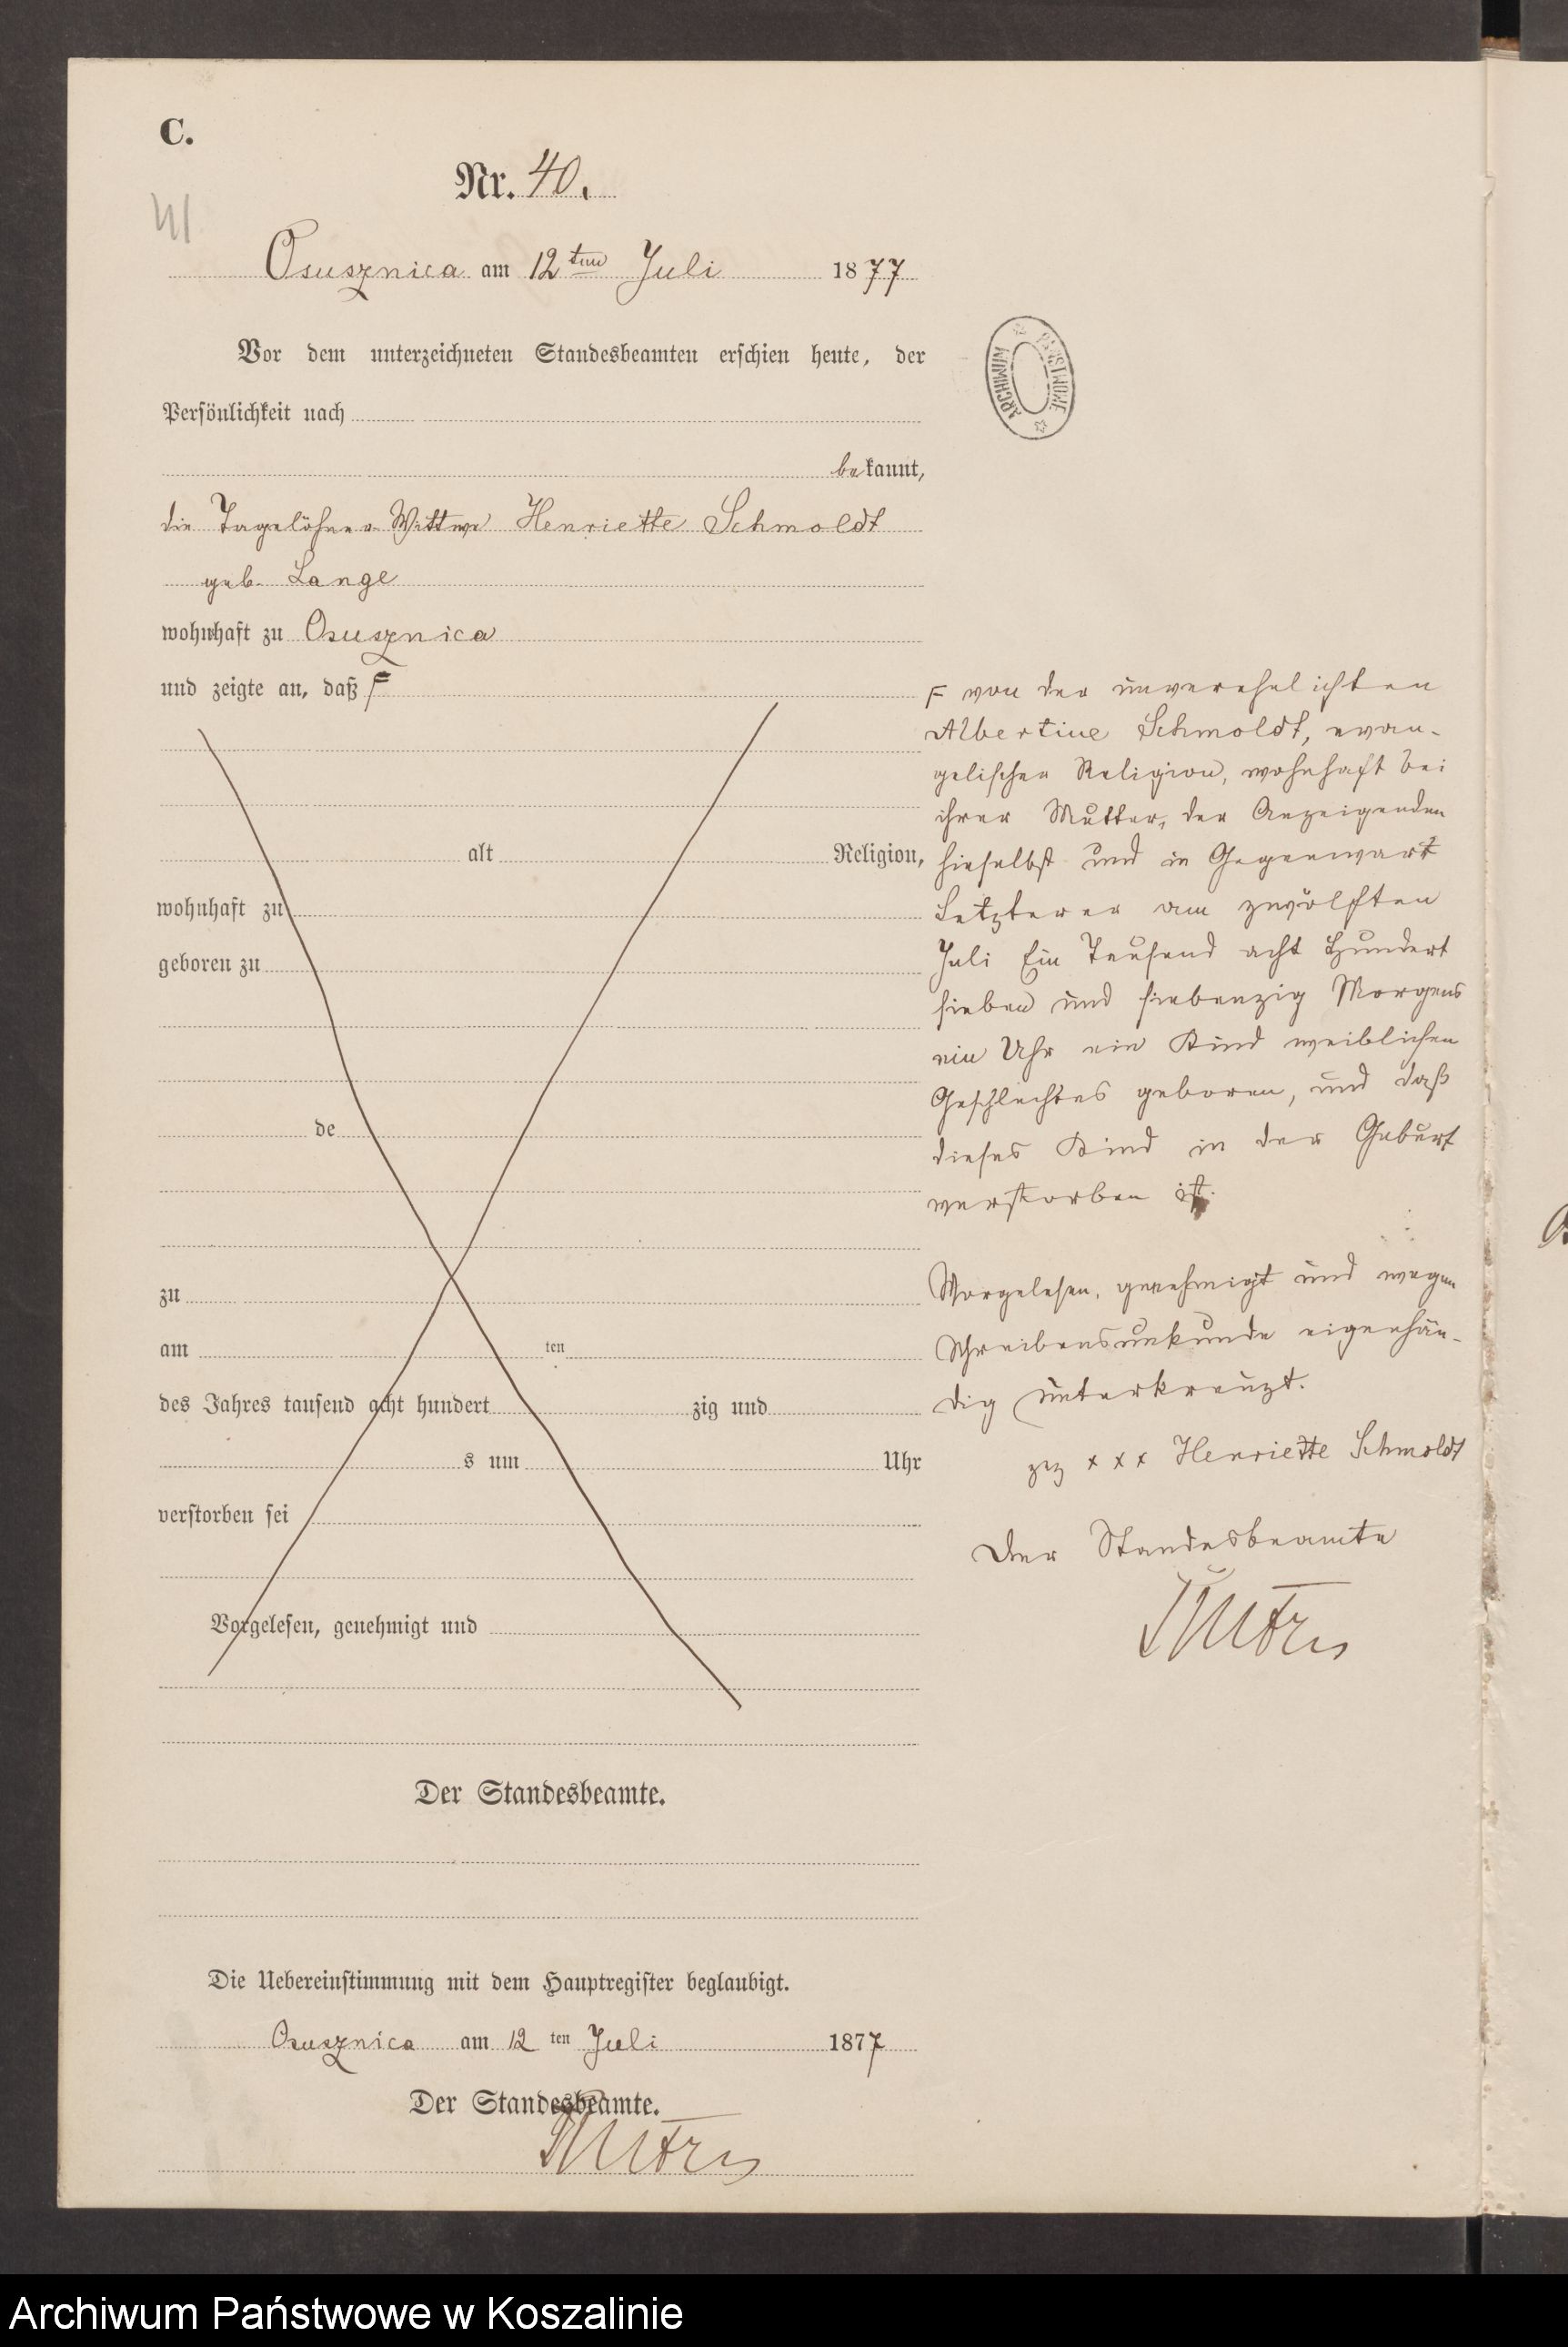 C.
Nr. 40.
41
Osusznica am 12ten Juli 1877
Vor dem unterzeichneten Standesbeamten erschien heute, der
Persönlichkeit nach
bekannt,
die Tagelöhner Wittwe Henriette Schmoldt
geb. Lange
wohnhaft zu Osusznica
und zeigte an, daß F
alt Religion,
wohnhaft zu
geboren zu
de
zu
am ten
des Jahres tausend acht hundert zig und
s um Uhr
verstorben sei
Vorgelesen, genehmigt und
Der Standesbeamte.
Die Uebereinstimmung mit dem Hauptregister beglaubigt.
Osusznica am 12 ten Juli 1877
Der Standesbeamte.
ARCHIWUM PAŃSTWOWE
F von der unverehelichten
Albertine Schmoldt, evan-
gelischer Religion, wohnhaft bei
ihrer Mutter, der Anzeigenden
hieselbst und in Gegenwart
Letzterer am zwölften
Juli Ein Tausend acht Hundert
sieben und siebenzig Morgens
ein Uhr ein Kind weiblichen
Geschlechtes geboren, und daß
dieses Kind in der Geburt
verstorben ist.
Vorgelesen, genehmigt und wegen
Schreibensunkunde eigenhän-
dig unterkreuzt.
gez x x x Henriette Schmoldt
Der Standesbeamte
Archiwum Państwowe w Koszalinie